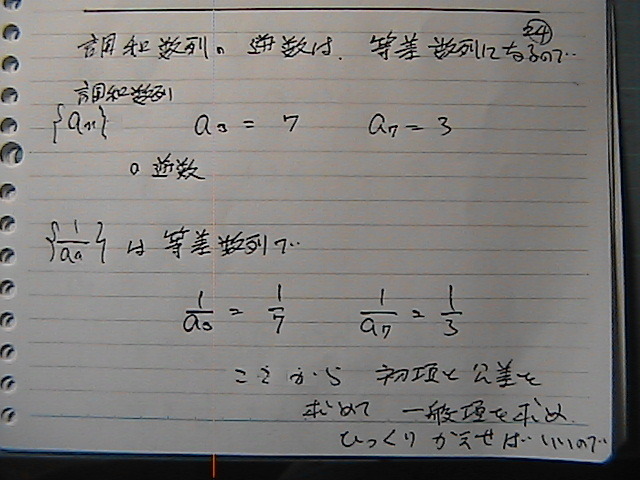 24
調和数列の逆数は、等差数列になるので‥
調和数列
{an} a3 = 7 a7 = 3
の逆数
{1/an} は等差数列で‥
1/a3 = 1/7 1/a7 = 1/3
ここから 初項と公差を
求めて 一般項を求め、
ひっくりかえせばいいので